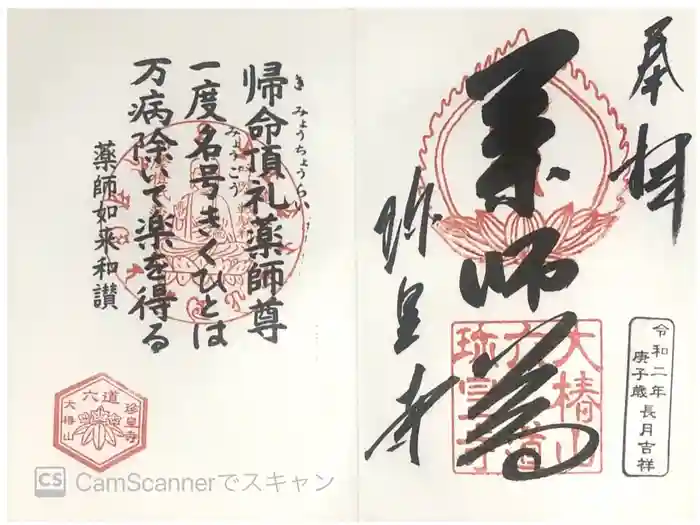 奉拝
薬師尊
珍皇寺
大椿山
六道
珍皇寺
令和二年
庚子歳長月吉祥
帰命頂礼薬師尊
きみょうちょうらい
一度名号きくひとは
みょうごう
万病除いて楽を得る
薬師如来和讃
六道
珍皇寺
大椿山
CS CamScannerでスキャン